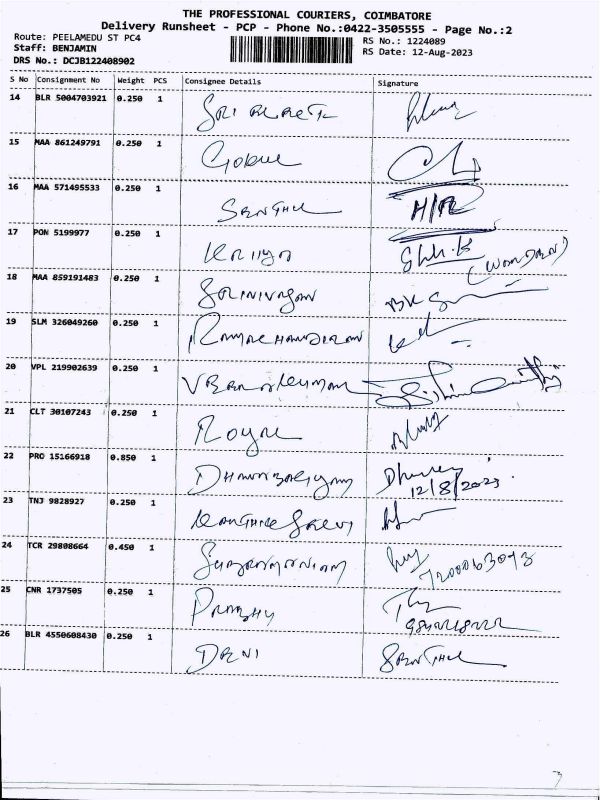 THE PROFESSIONAL COURIERS, COIMBATORE
Delivery Runsheet - PCP - Phone No.:0422-3505555 - Page No.:2
Route: PEELAMEDU ST PC4 RS No.: 1224089
Staff: BENJAMIN RS Date: 12-Aug-2023
DRS No.: DCJB122408902
S No Consignment No Weight PCS Consignee Details Signature
14 BLR 5004703921 0.250 1 SRI
15 MAA 861249791 0.250 1 Gokul
16 MAA 571495533 0.250 1 SENTHIL H/R
17 PON 5199977 0.250 1
(WARDEN)
18 MAA 859191483 0.250 1 SRINIVASAN
19 SLM 326049260 0.250 1 RAMACHANDIRAN
20 VPL 219902639 0.250 1
21 CLT 30107243 0.250 1 Royal
22 PRO 15166918 0.850 1
12/8/2023
23 TNJ 9828927 0.250 1
24 TCR 29808664 0.450 1 SUBRAMANIAM
25 CNR 1737505 0.250 1 PRABHU
26 BLR 4550608430 0.250 1 DEVI SENTHIL